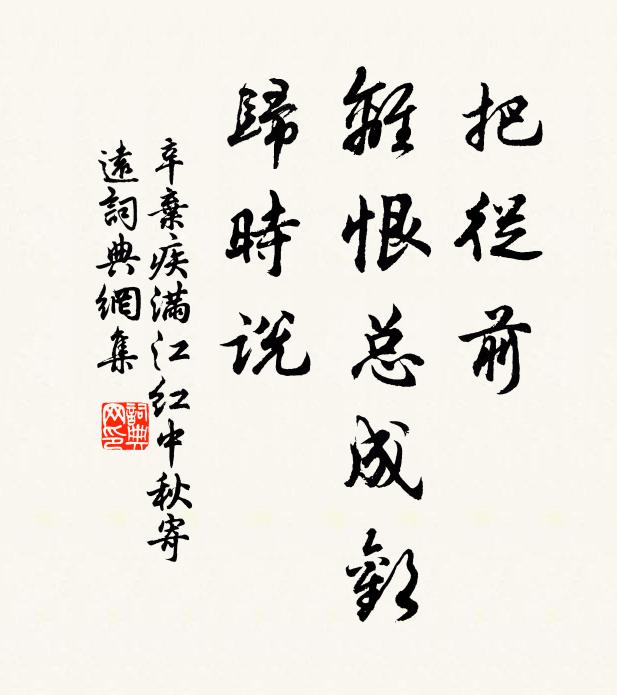 把從前
離恨总成歡
歸時說
辛棄疾滿江紅中秋寄
遠詞典網集
詞典网印